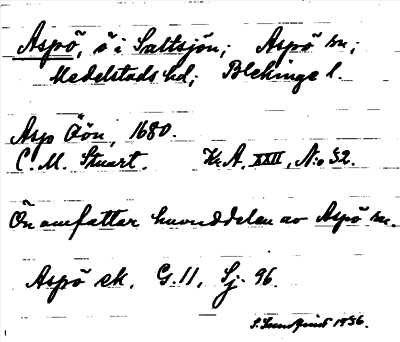 Aspö, ö i Saltsjön; Aspö sn;
Medelstads hd; Blekinge l.
Asp Öön, 1680.
C. M. Stuart. Kr. A. XXII, N:o 32.
Ön omfattar huvuddelen av Aspö sn.
Aspö ek. G. 11, Sj. 96.
S. Sundquist 1936.